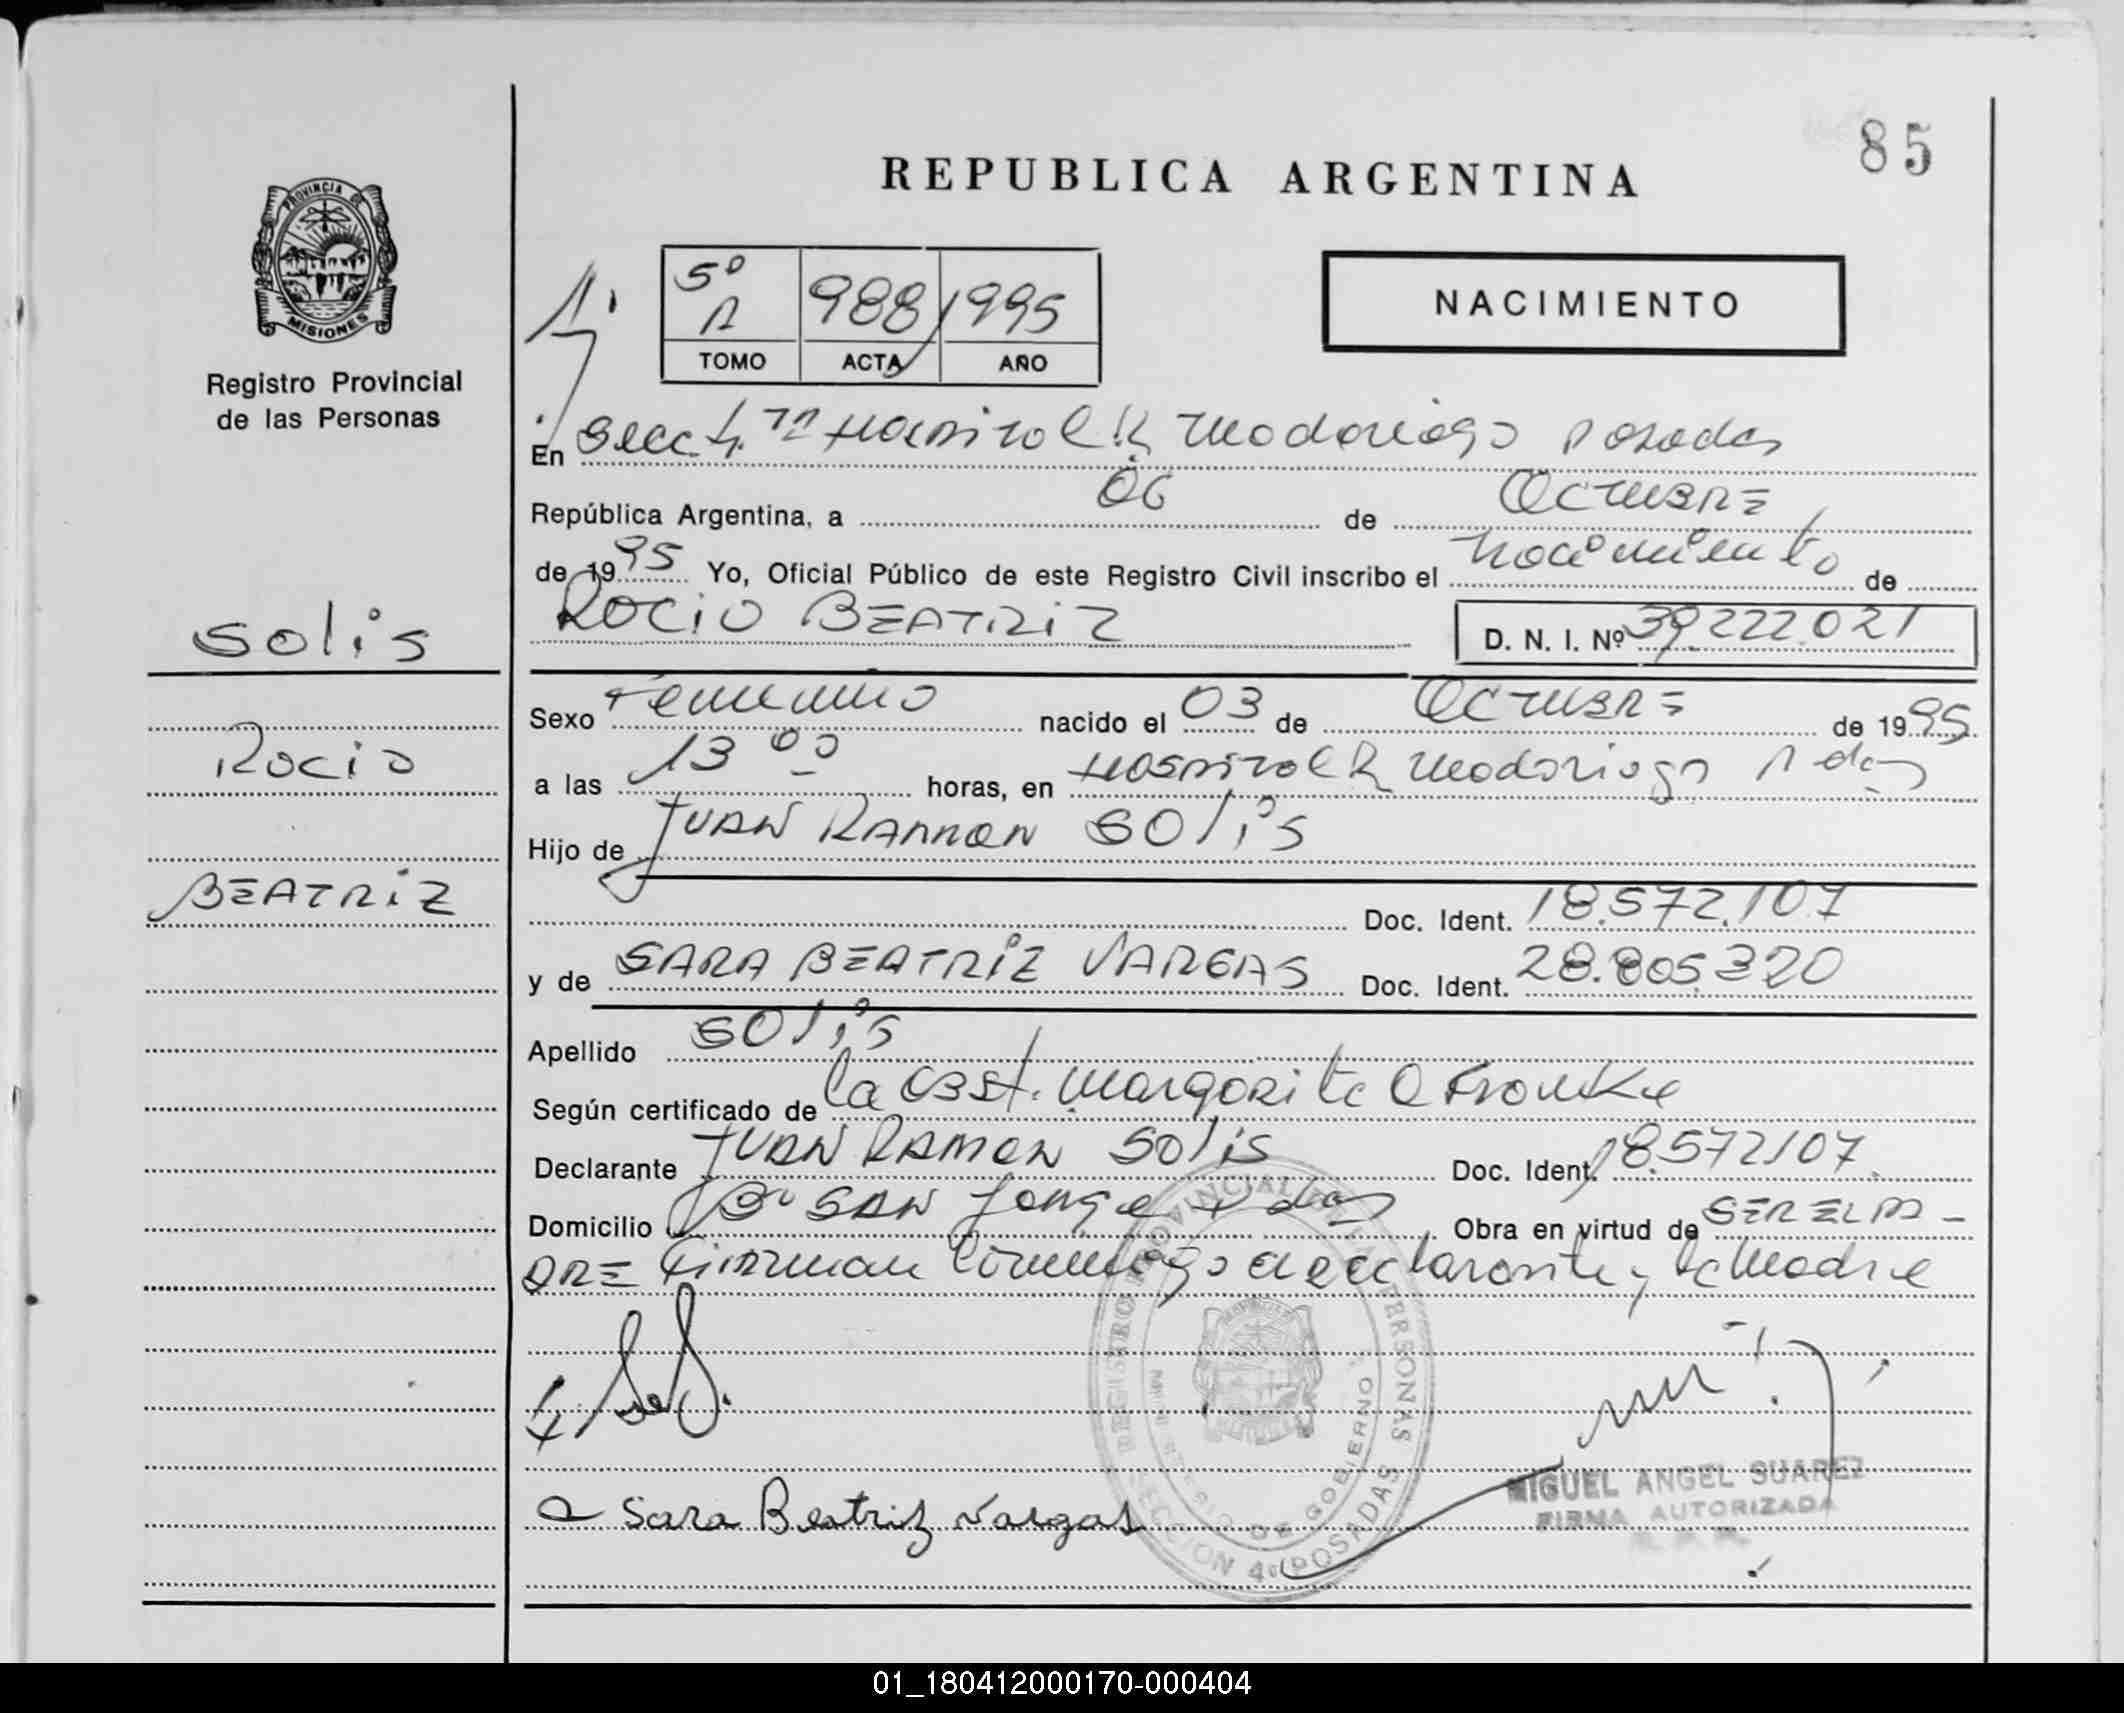 85
REPUBLICA ARGENTINA
PROVINCIA DE
MISIONES
Registro Provincial
de las Personas
5º
A
988 1995
TOMO ACTA AÑO
NACIMIENTO
En Secc 4ta Hospital R Madariaga Posadas
República Argentina, a 06 de Octubre
de 1995 Yo, Oficial Público de este Registro Civil inscribo el nacimiento de
ROCIO BEATRIZ D. N. I. Nº 39.222.021
Solis
Rocio
BEATRIZ
Sexo Femenino nacido el 03 de Octubre de 1995
a las 13 00 horas, en Hospital R Madariaga Pdas
Hijo de JUAN RAMON SOLIS
Doc. Ident. 18.572.107
y de SARA BEATRIZ VARGAS Doc. Ident. 28.805.320
Apellido SOLIS
Según certificado de la Obst. Margarita Q Franke
Declarante JUAN RAMON SOLIS Doc. Ident. 18.572107
Domicilio Bº SAN Jorge Pdas Obra en virtud de SER EL PA-
DRE Firman conmigo el declarante y la Madre
REGISTRO PROVINCIAL DE LAS PERSONAS
MINISTERIO DE GOBIERNO
SECCION 4ta POSADAS
Sara Beatriz Vargas
MIGUEL ANGEL SUAREZ
FIRMA AUTORIZADA
01_180412000170-000404